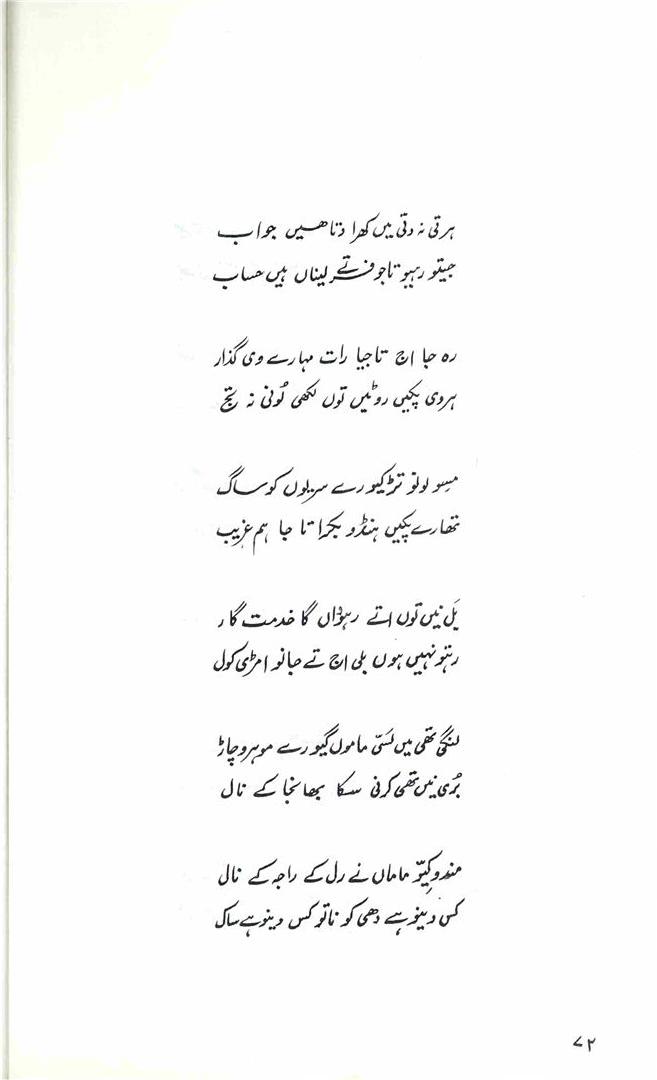 ہرتی نہ دتی میں کھرا دتا ھیں جواب
جیتو رہیو تاجو فرتے لیناں ہیں حساب
رہ جا اج تاجیا رات مہارے وی گذار
ہر دی پکیں روٹیں توں لکھی کُونی نہ تج
مِسو لونو تڑکیو رے سریوں کو ساگ
تھارے پکیں ہنڈو بکرا تا جا ہم غریب
یَل نیں توں اتے رہوَاں گا خدمت گار
رہتو نہیں ہوں بلی اج تے جانو امڑی کول
لنگی تھی میں لَسّی ماموں گیو رے موہرو چاڑ
بُری نیں تھی کرنی سکا بھانجا کے نال
مندو کِیّو ماماں نے رل کے راجہ کے نال
کس دینو ہے دھی کو ناتو کس دینو ہے ساک
۷۲